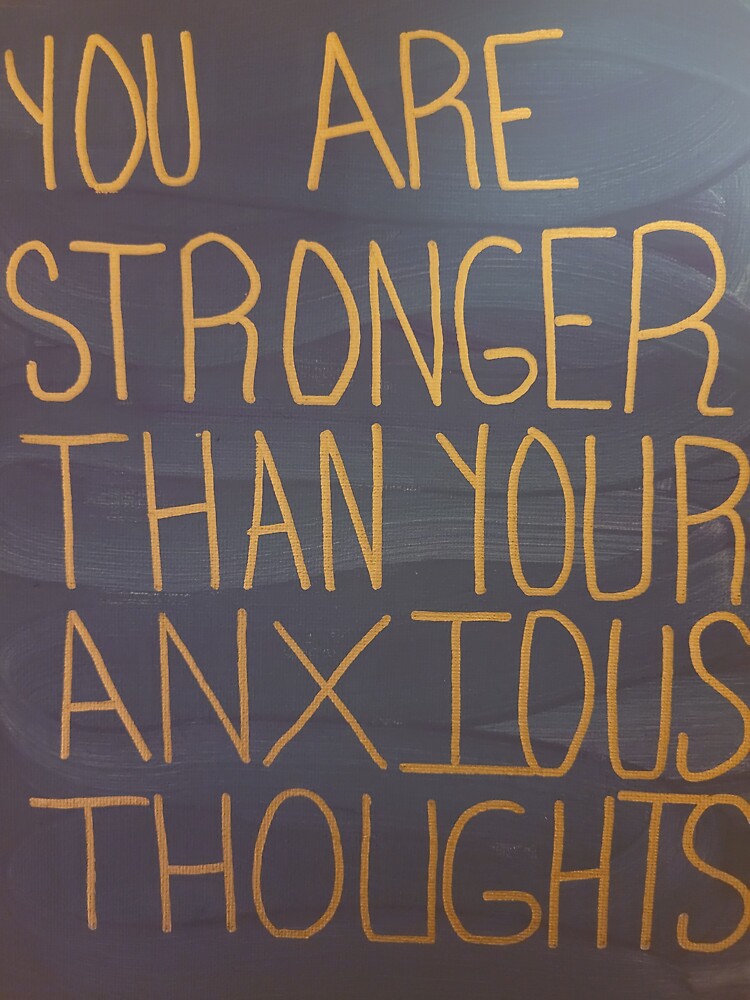 YOU ARE
STRONGER
THAN YOUR
ANXIOUS
THOUGHTS